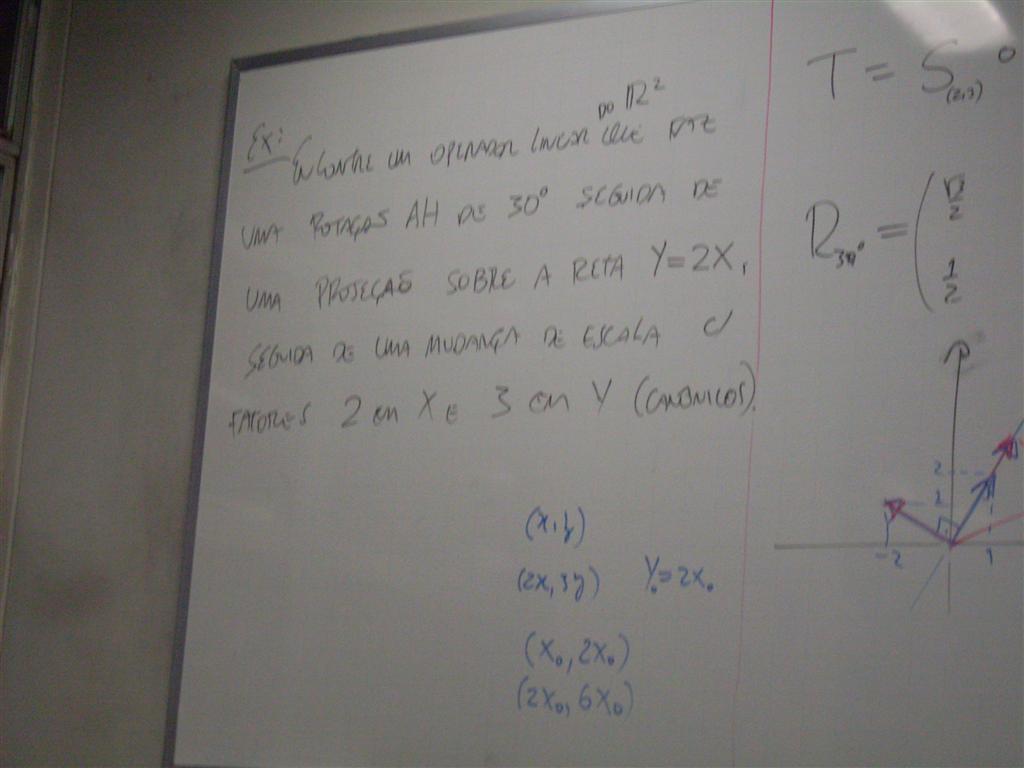 Ex: ENCONTRE UM OPERADOR LINEAR DO ℝ² QUE FAZ
UMA ROTAÇÃO AH DE 30° SEGUIDA DE
UMA PROJEÇÃO SOBRE A RETA Y=2X,
SEGUIDA DE UMA MUDANÇA DE ESCALA C/
FATORES 2 EM X E 3 EM Y (CANÔNICOS).
(x,y)
(2x,3y) Y₀=2x₀
(x₀,2x₀)
(2x₀,6x₀)
T = S(2,3) ∘
R30° = (
√3/2
1/2
2
1
-2 1